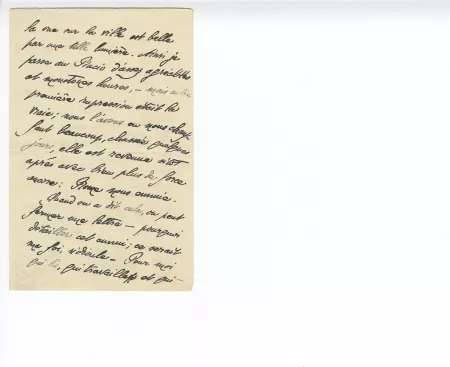 la vue sur la ville est belle
par une telle lumière. Ainsi je
passe au Pincio d'assez agréables
et monotones heures, – mais notre
première impression était la
vraie; nous l'avons
faut beaucoup, chassée quelques
jours, elle est revenue sitôt
après avec bien plus de force
encore: Rome nous ennuie.
Quand on a dit cela, on peut
fermer une lettre – pourquoi
détailler cet ennui; ce serait
ma foi, ridicule – Pour moi
qui lis, qui travaille et qui –